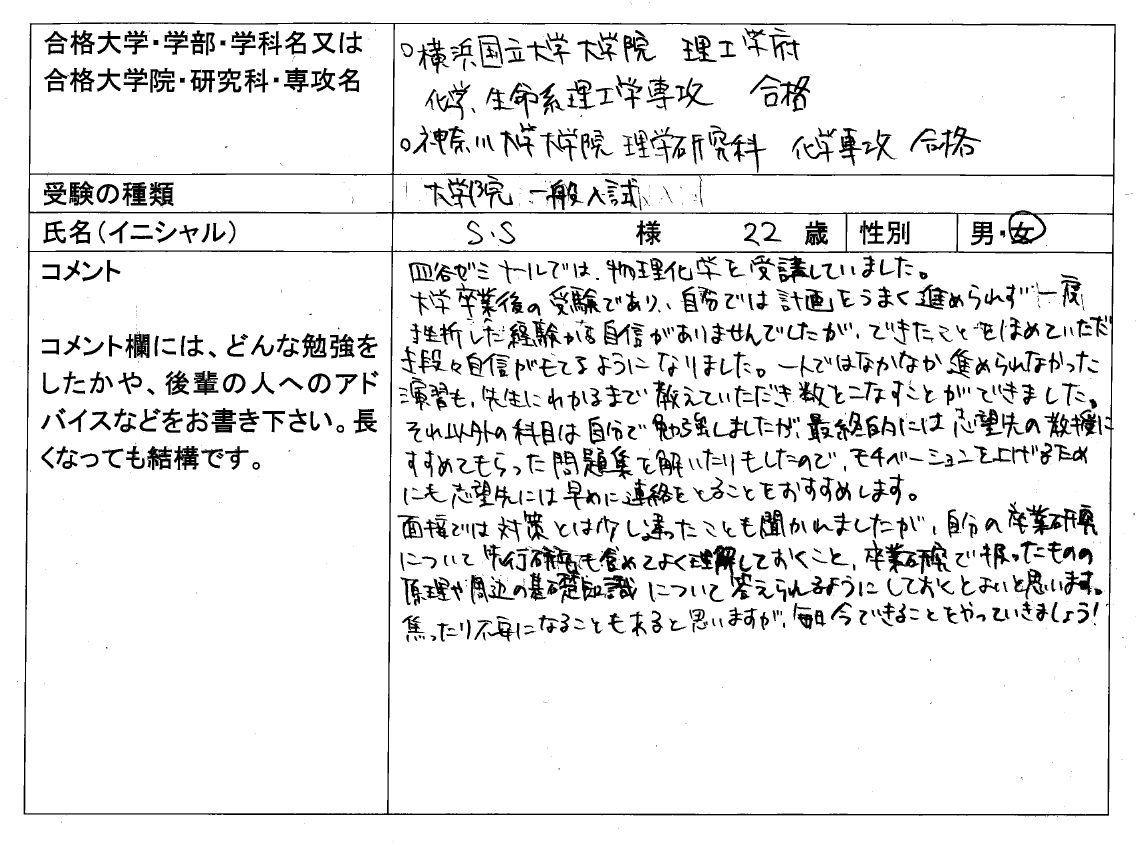 合格大学・学部・学科名又は
合格大学院・研究科・専攻名
○横浜国立大学大学院 理工学府
化学、生命系理工学専攻 合格
○神奈川大学大学院 理学研究科 化学専攻 合格
受験の種類
大学院 一般入試
氏名(イニシャル)
S.S 様 22 歳 性別 男・女
コメント
コメント欄には、どんな勉強を
したかや、後輩の人へのアド
バイスなどをお書き下さい。長
くなっても結構です。
四谷ゼミナールでは、物理化学を受講していました。
大学卒業後の受験であり、自分では計画をうまく進められず一度
挫折した経験から自信がありませんでしたが、できたことをほめていただ
き段々自信がもてるようになりました。一人ではなかなか進められなかった
演習も、先生にわかるまで教えていただき数をこなすことができました。
それ以外の科目は自分で勉強しましたが、最終的には志望先の教授に
すすめてもらった問題集を解いたりもしたので、モチベーションを上げるため
にも志望先には早めに連絡をとることをおすすめします。
面接では対策とは少し違ったことも聞かれましたが、自分の卒業研究
について先行研究も含めてよく理解しておくこと、卒業研究で扱ったものの
原理や周辺の基礎知識について答えられるようにしておくとよいと思います。
焦ったり不安になることもあると思いますが、毎日今できることをやっていきましょう!